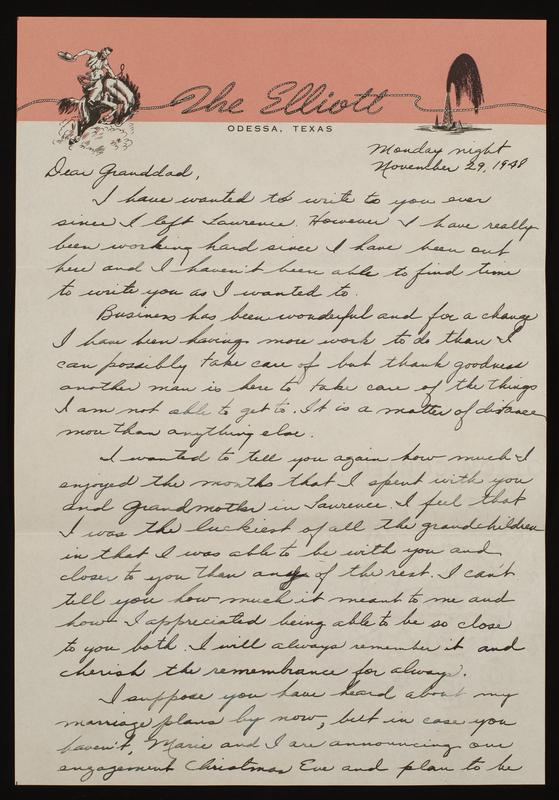 The Elliott
ODESSA, TEXAS
Monday night
November 29, 1948
Dear Granddad,
I have wanted to write to you ever
since I left Lawrence. However I have really
been working hard since I have been out
here and I haven't been able to find time
to write you as I wanted to.
Business has been wonderful and for a change
I have been having more work to do than I
can possibly take care of but thank goodness
another man is here to take care of the things
I am not able to get to. It is a matter of distance
more than anything else.
I wanted to tell you again how much I
enjoyed the months that I spent with you
and Grandmother in Lawrence. I feel that
I was the luckiest of all the grandchildren
in that I was able to be with you and
closer to you than any of the rest. I can't
tell you how much it meant to me and
how I appreciated being able to be so close
to you both. I will always remember it and
cherish the remembrance for always.
I suppose you have heard about my
marriage plans by now, but in case you
haven't, Marie and I are announcing our
engagement Christmas Eve and plan to be